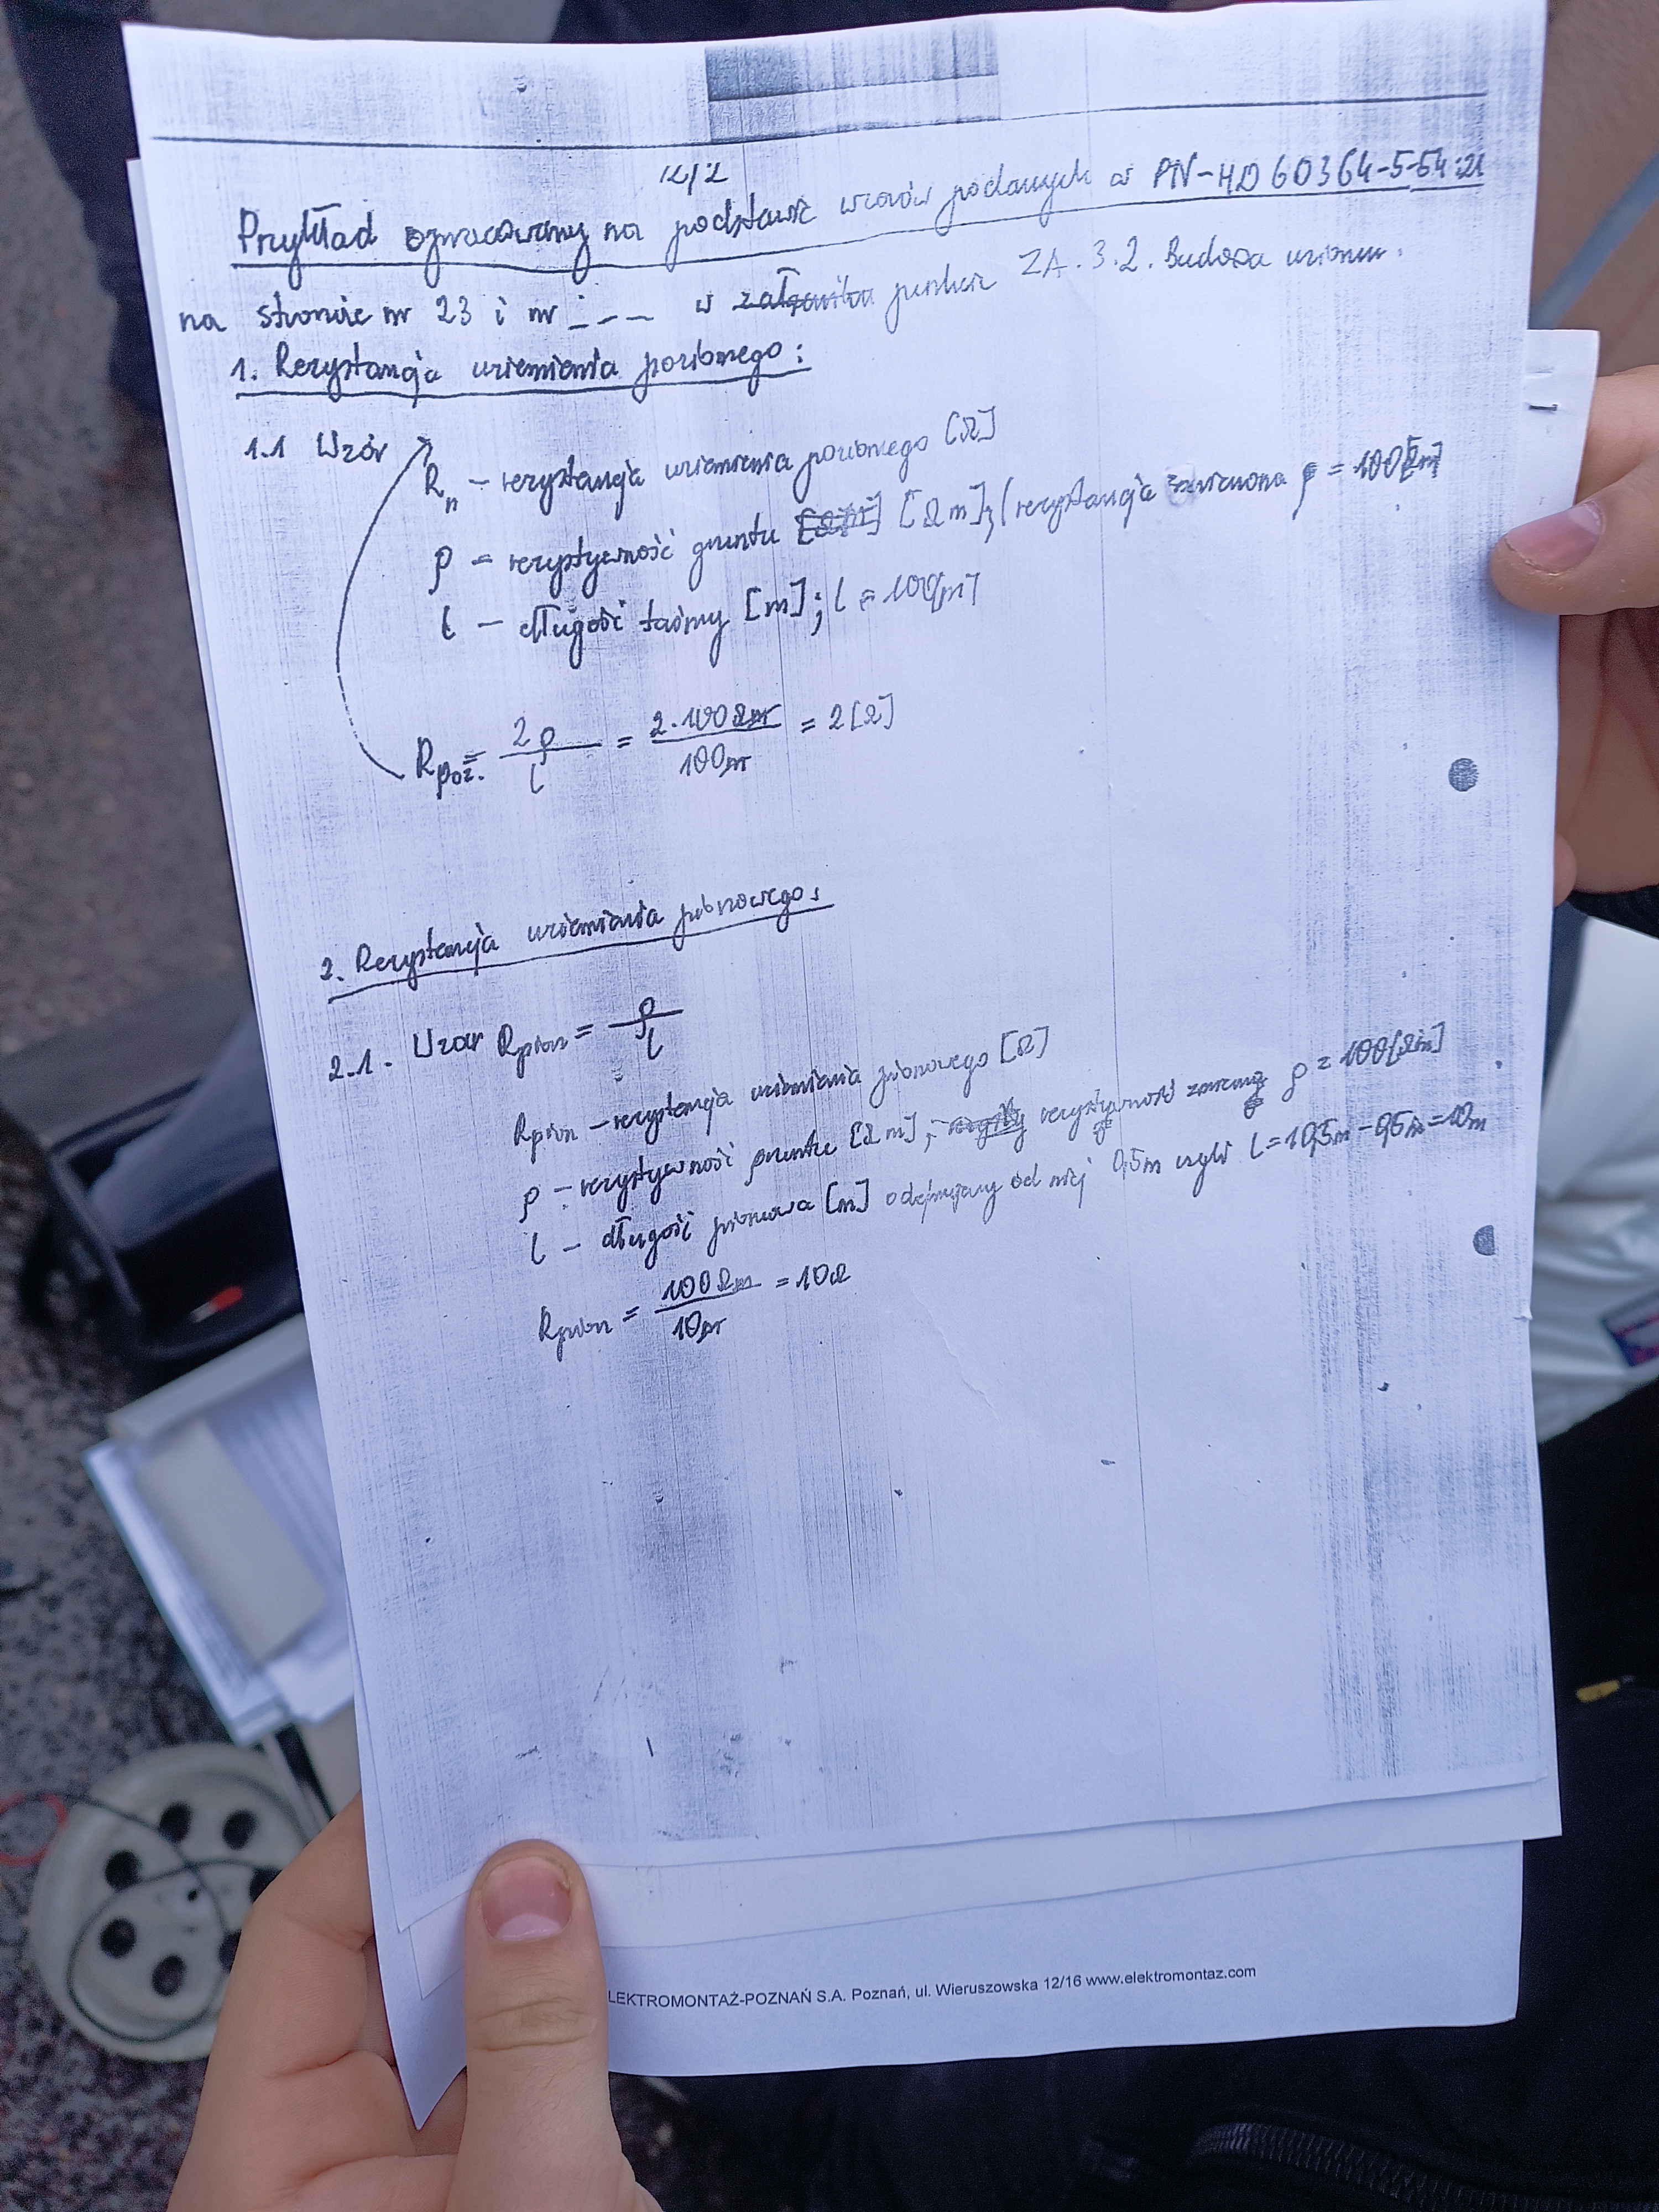 12/2
Przykład opracowany na podstawie wzorów podanych w PN-HD 60364-5-54:21
na stronie nr 23 i nr _ _ _ w punkcie ZA.3.2. Budowa uziomu.
1. Rezystancja uziemienia poziomego:
1.1 Wzór
Rn - rezystancja uziemienia poziomego [Ω]
ρ - rezystywność gruntu [Ωm] [Ωm]; (rezystancja ρ = 100[Ωm]
l - długość taśmy [m]; l = 100[m]
Rpoz. = 2ρ/l = 2·100Ωm/100m = 2[Ω]
2. Rezystancja uziemienia pionowego:
2.1. Wzór Rpion = ρ/l
Rpion - rezystancja uziemienia pionowego [Ω]
ρ - rezystywność gruntu [Ωm], rezystywność ρ = 100[Ωm]
l - długość pionowa [m] odejmujemy od niej 0,5m czyli l = 10,5m - 0,5m = 10m
Rpion = 100Ωm/10m = 10Ω
LEKTROMONTAŻ-POZNAŃ S.A. Poznań, ul. Wieruszowska 12/16 www.elektromontaz.com